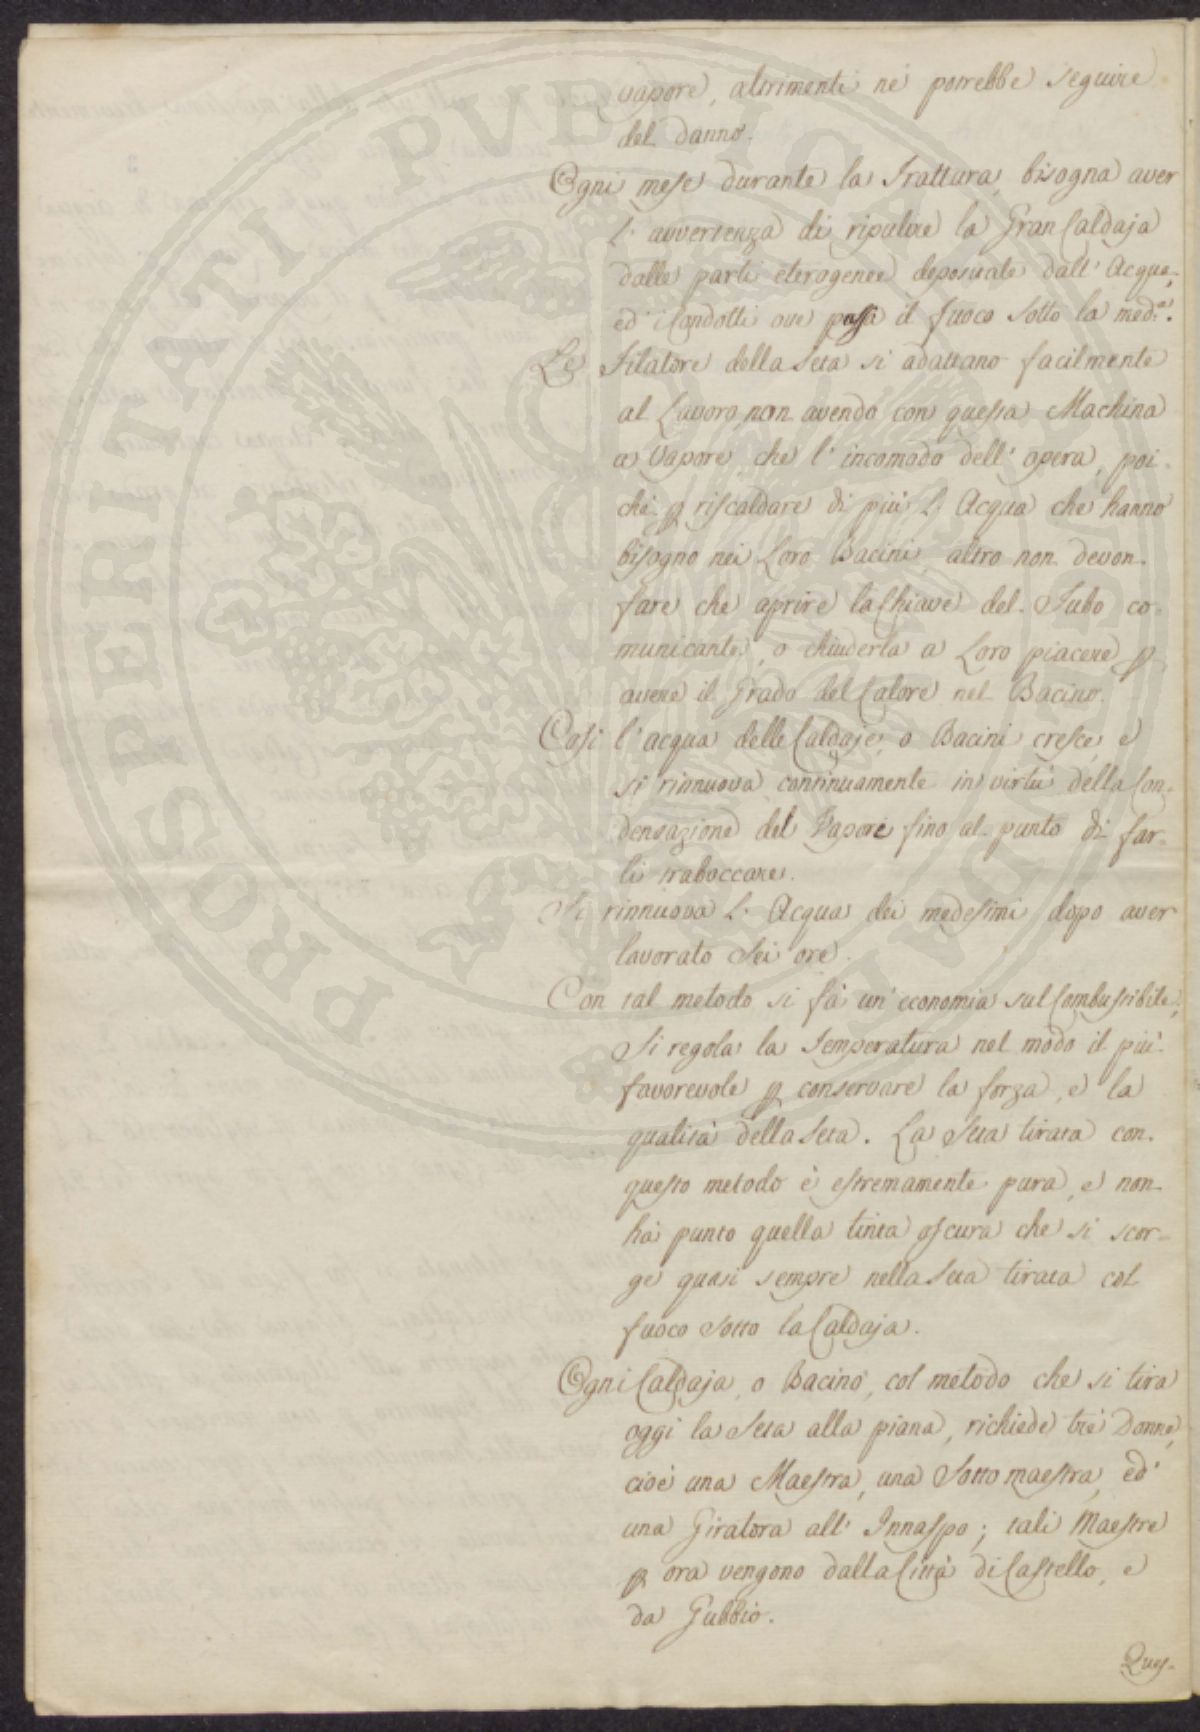 vapore, altrimenti né potrebbe seguire
del danno.
Ogni mese durante la Trattura, bisogna aver
l'avvertenza di ripulire la Gran Caldaja
dalle parti eterogenee depositate dall'Acqua,
ed i Condotti ove passa il fuoco sotto la med.a.
Le Filatore della Seta si adattano facilmente
al Lavoro, non avendo con questa Machina
a Vapore, che l'incomodo dell'opera, poi-
ché p riscaldare di più l'Acqua che hanno
bisogno nei Loro Bacini, altro non devon
fare che aprire la Chiave del Tubo co-
municante, o chiuderla a Loro piacere p
avere il Grado del Calore nel Bacino.
Così l'acqua delle Caldaje, o Bacini cresce, e
si rinnuova continuamente in virtù della Con-
densazione del Vapore fino al punto di far-
li traboccare.
Si rinnuova l'Acqua dei medesimi dopo aver
lavorato Sei ore.
Con tal metodo si fà un'economia sul Combustibile,
Si regola la Temperatura nel modo il più
favorevole p conservare la forza, e la
qualità della Seta. La Seta tirata con
questo metodo è estremamente pura, e non
hà punto quella tinta oscura che si scor-
ge quasi sempre nella Seta tirata col
fuoco sotto la Caldaja.
Ogni Caldaja, o Bacino, col metodo che si tira
oggi la Seta alla piana, richiede trè Donne,
cioè una Maestra, una Sotto maestra, ed
una Giratora all'Innaspo; tali Maestre
p ora vengono dalla Città di Castello, e
da Gubbio.
Ques-
PROSPERITATI PVBLICAE